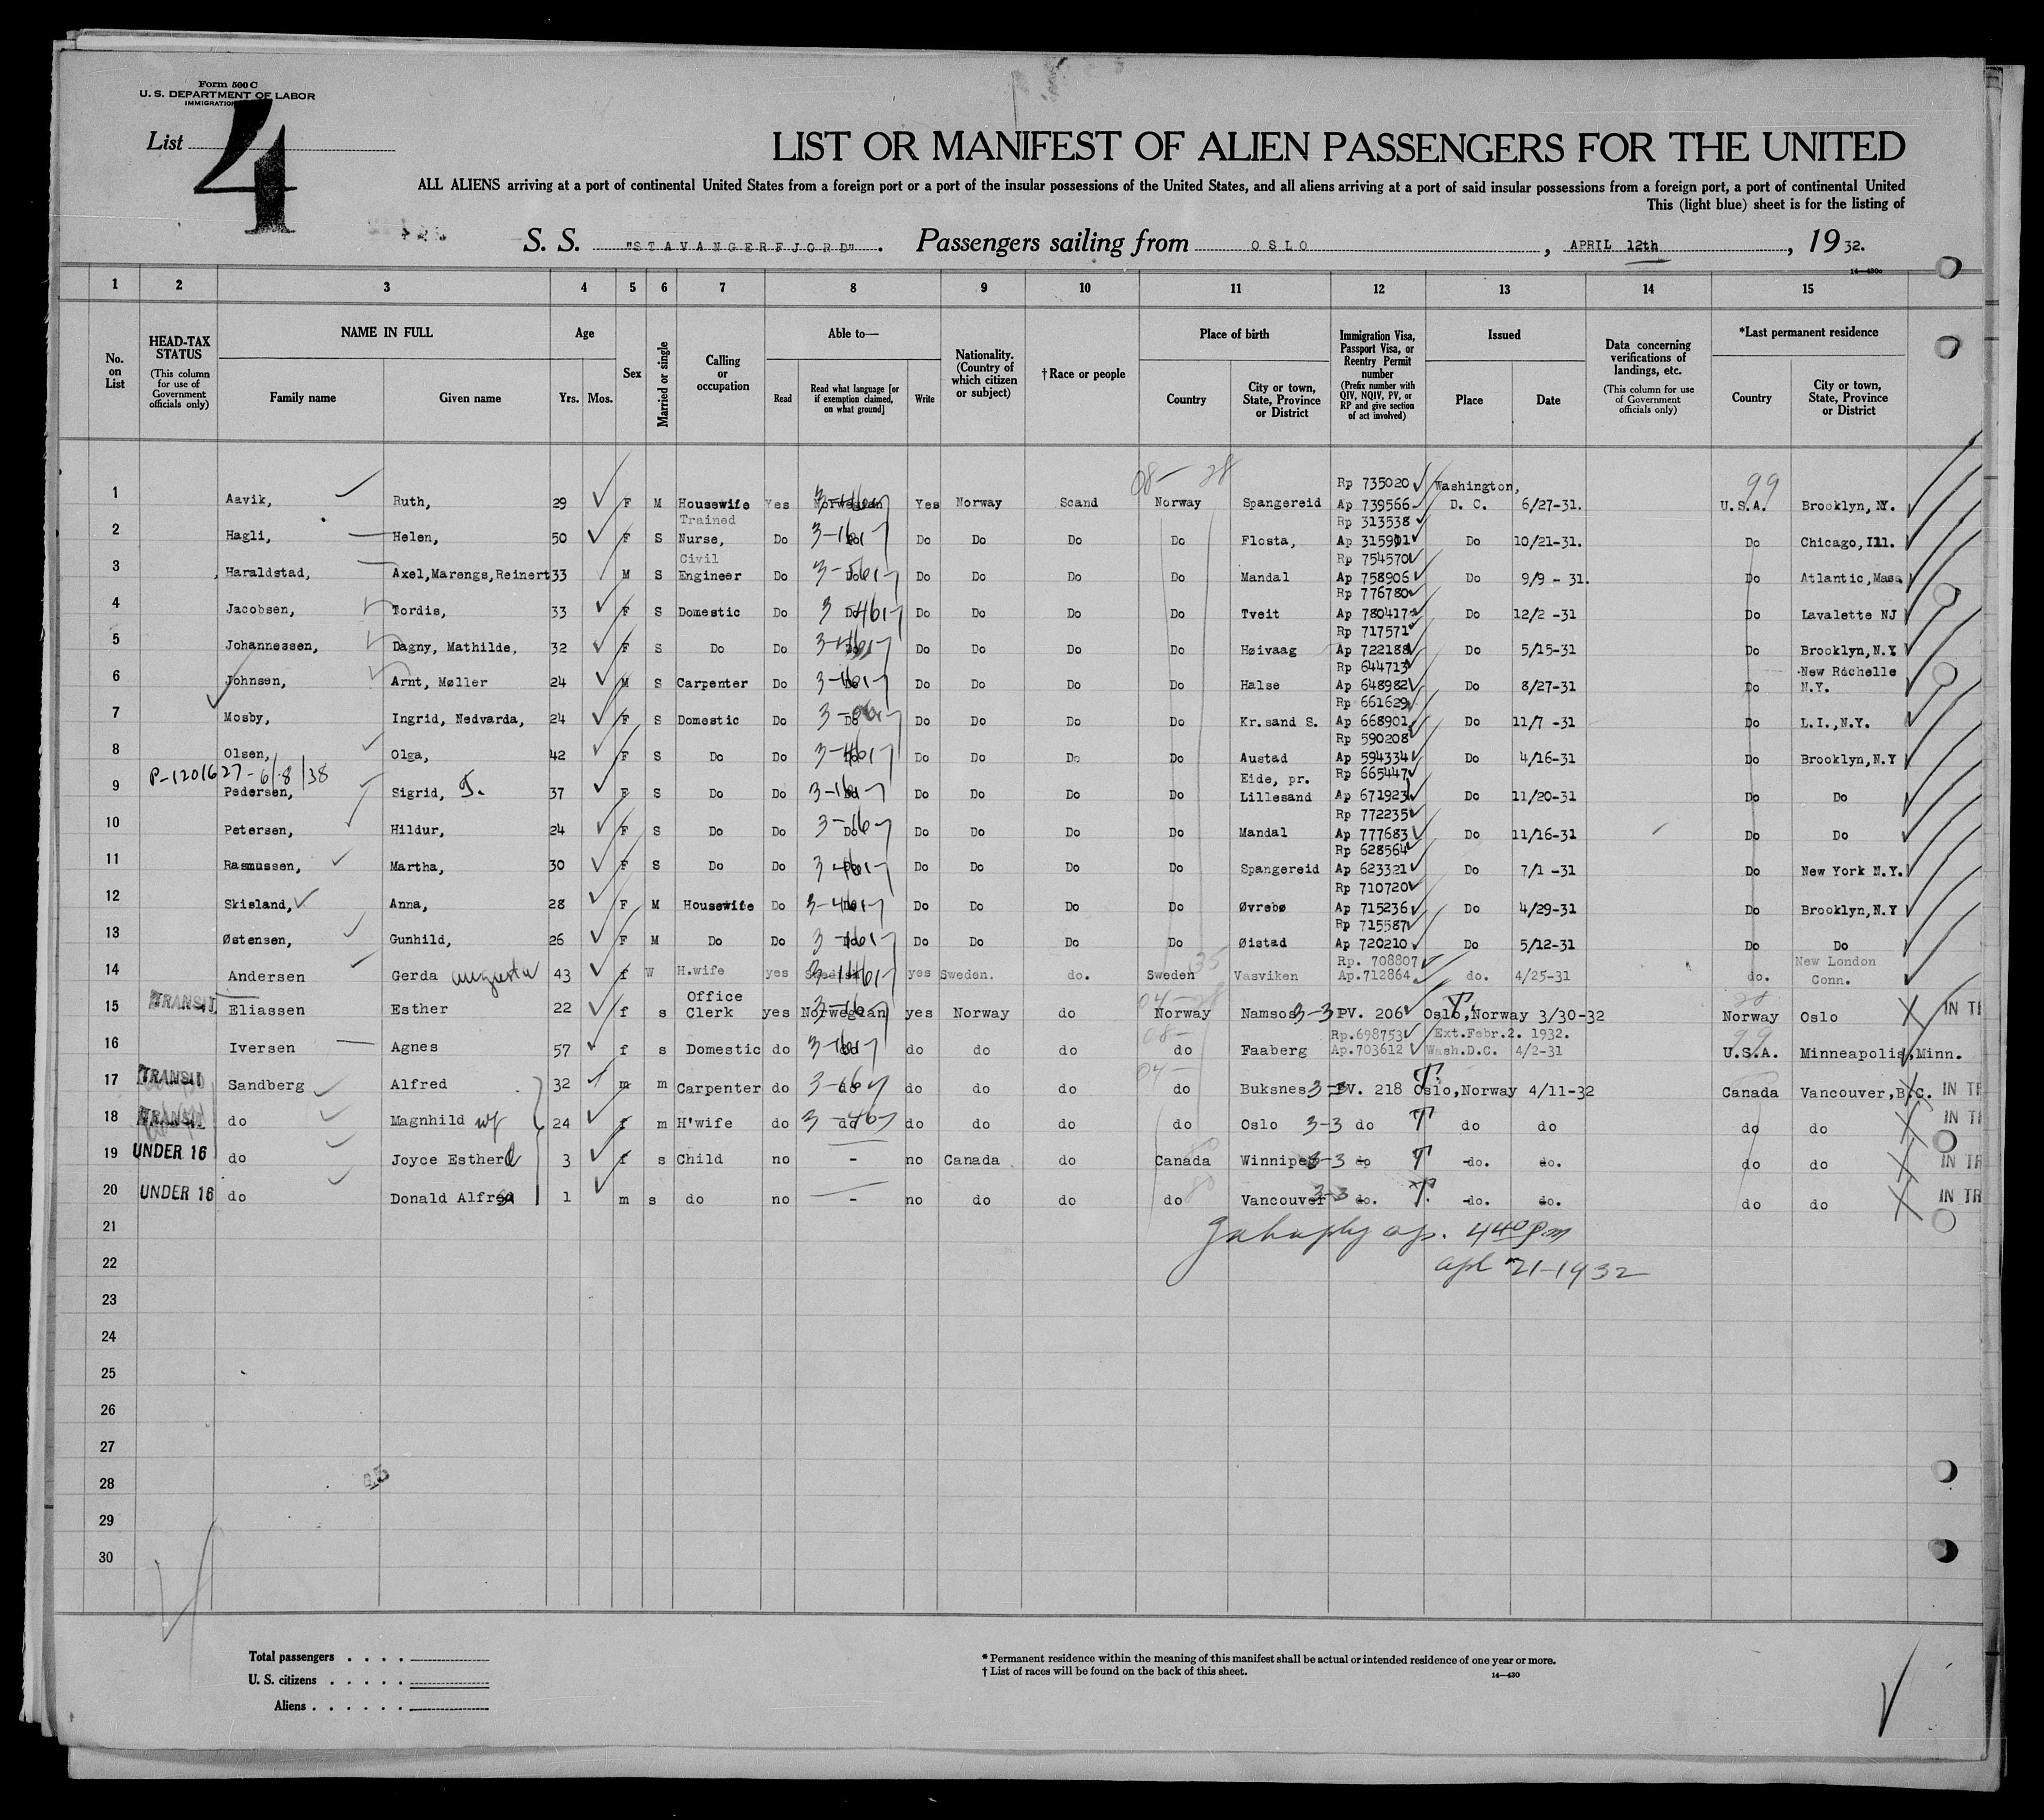 Form 500 C
U. S. DEPARTMENT OF LABOR
IMMIGRATION
List 4
LIST OR MANIFEST OF ALIEN PASSENGERS FOR THE UNITED
ALL ALIENS arriving at a port of continental United States from a foreign port or a port of the insular possessions of the United States, and all aliens arriving at a port of said insular possessions from a foreign port, a port of continental United
This (light blue) sheet is for the listing of
S. S. "STAVANGERFJORD". Passengers sailing from OSLO, APRIL 12th, 1932.
14—430c
1 2 3 4 5 6 7 8 9 10 11 12 13 14 15
No. on List
HEAD-TAX STATUS (This column for use of Government officials only)
NAME IN FULL Family name Given name
Age Yrs. Mos.
Sex
Married or single
Calling or occupation
Able to— Read Read what language [or if exemption claimed, on what ground] Write
Nationality. (Country of which citizen or subject)
†Race or people
Place of birth Country City or town, State, Province or District
Immigration Visa, Passport Visa, or Reentry Permit number (Prefix number with QIV, NQIV, PV, or RP and give section of act involved)
Issued Place Date
Data concerning verifications of landings, etc. (This column for use of Government officials only)
*Last permanent residence Country City or town, State, Province or District
08- 28 99
1 Aavik, Ruth, 29 F M Housewife Yes Norwegian Yes Norway Scand Norway Spangereid Rp 735020 Ap 739566 Washington, D. C. 6/27-31. U.S.A. Brooklyn, NY.
2 Hagli, Helen, 50 F S Trained Nurse, Do Do Do Do Do Do Flosta, Rp 313538 Ap 315901 Do 10/21-31. Do Chicago, Ill.
3 Haraldstad, Axel,Marengs,Reinert 33 M S Civil Engineer Do Do Do Do Do Do Mandal Rp 754570 Ap 758906 Do 9/9 - 31. Do Atlantic,Mass
4 Jacobsen, Tordis, 33 F S Domestic Do Do Do Do Do Do Tveit Rp 776780 Ap 780417 Do 12/2 -31 Do Lavalette NJ
5 Johannessen, Dagny, Mathilde, 32 F S Do Do Do Do Do Do Do Høivaag Rp 717571 Ap 722188 Do 5/15-31 Do Brooklyn,N.Y
6 Johnsen, Arnt, Møller 24 M S Carpenter Do Do Do Do Do Do Halse Rp 644713 Ap 648982 Do 8/27-31 Do New Rochelle N.Y.
7 Mosby, Ingrid, Nedvarda, 24 F S Domestic Do Do Do Do Do Do Kr.sand S. Rp 661629 Ap 668901 Do 11/7 -31 Do L.I.,N.Y.
8 Olsen, Olga, 42 F S Do Do Do Do Do Do Do Austad Rp 590208 Ap 594334 Do 4/16-31 Do Brooklyn,N.Y
P-1201627-6/8/38
9 Pedersen, Sigrid, T. 37 F S Do Do Do Do Do Do Do Eide, pr. Lillesand Rp 665447 Ap 671923 Do 11/20-31 Do Do
10 Petersen, Hildur, 24 F S Do Do Do Do Do Do Do Mandal Rp 772235 Ap 777683 Do 11/16-31 Do Do
11 Rasmussen, Martha, 30 F S Do Do Do Do Do Do Do Spangereid Rp 628564 Ap 623321 Do 7/1 -31 Do New York N.Y.
12 Skisland, Anna, 28 F M Housewife Do Do Do Do Do Do Øvrebø Rp 710720 Ap 715236 Do 4/29-31 Do Brooklyn,N.Y
13 Østensen, Gunhild, 26 F M Do Do Do Do Do Do Do Øistad Rp 715587 Ap 720210 Do 5/12-31 Do Do
14 Andersen Gerda Augusta 43 f W H.wife yes Swedish yes Sweden. do. Sweden Vasviken Rp. 708807 Ap.712864 do. 4/25-31 do. New London Conn.
15 TRANSIT Eliassen Esther 22 f s Office Clerk yes Norwegian yes Norway do Norway Namsos 3-3 PV. 206 Oslo,Norway 3/30-32 Norway Oslo IN TR
16 Iversen Agnes 57 f s Domestic do do do do do do Faaberg Rp.698753 Ap.703612 Ext.Febr.2. 1932. Wash.D.C. 4/2-31 U.S.A. Minneapolis,Minn.
17 TRANSIT Sandberg Alfred 32 m m Carpenter do do do do do do Buksnes 3-3 PV. 218 Oslo,Norway 4/11-32 Canada Vancouver,B.C. IN TR
18 TRANSIT do Magnhild wf 24 f m H'wife do do do do do do Oslo 3-3 do do do do do IN TR
19 UNDER 16 do Joyce Esther 3 f s Child no - no Canada do Canada Winnipeg 3-3 do do. do. do do IN TR
20 UNDER 16 do Donald Alfred 1 m s do no - no do do do Vancouver 3-3 do. do. do. do do IN TR
21 4 40 pm
22 Apl 21-1932
23
24
25
26
27
28
29
30
Total passengers
U. S. citizens
Aliens
* Permanent residence within the meaning of this manifest shall be actual or intended residence of one year or more.
† List of races will be found on the back of this sheet.
14—430